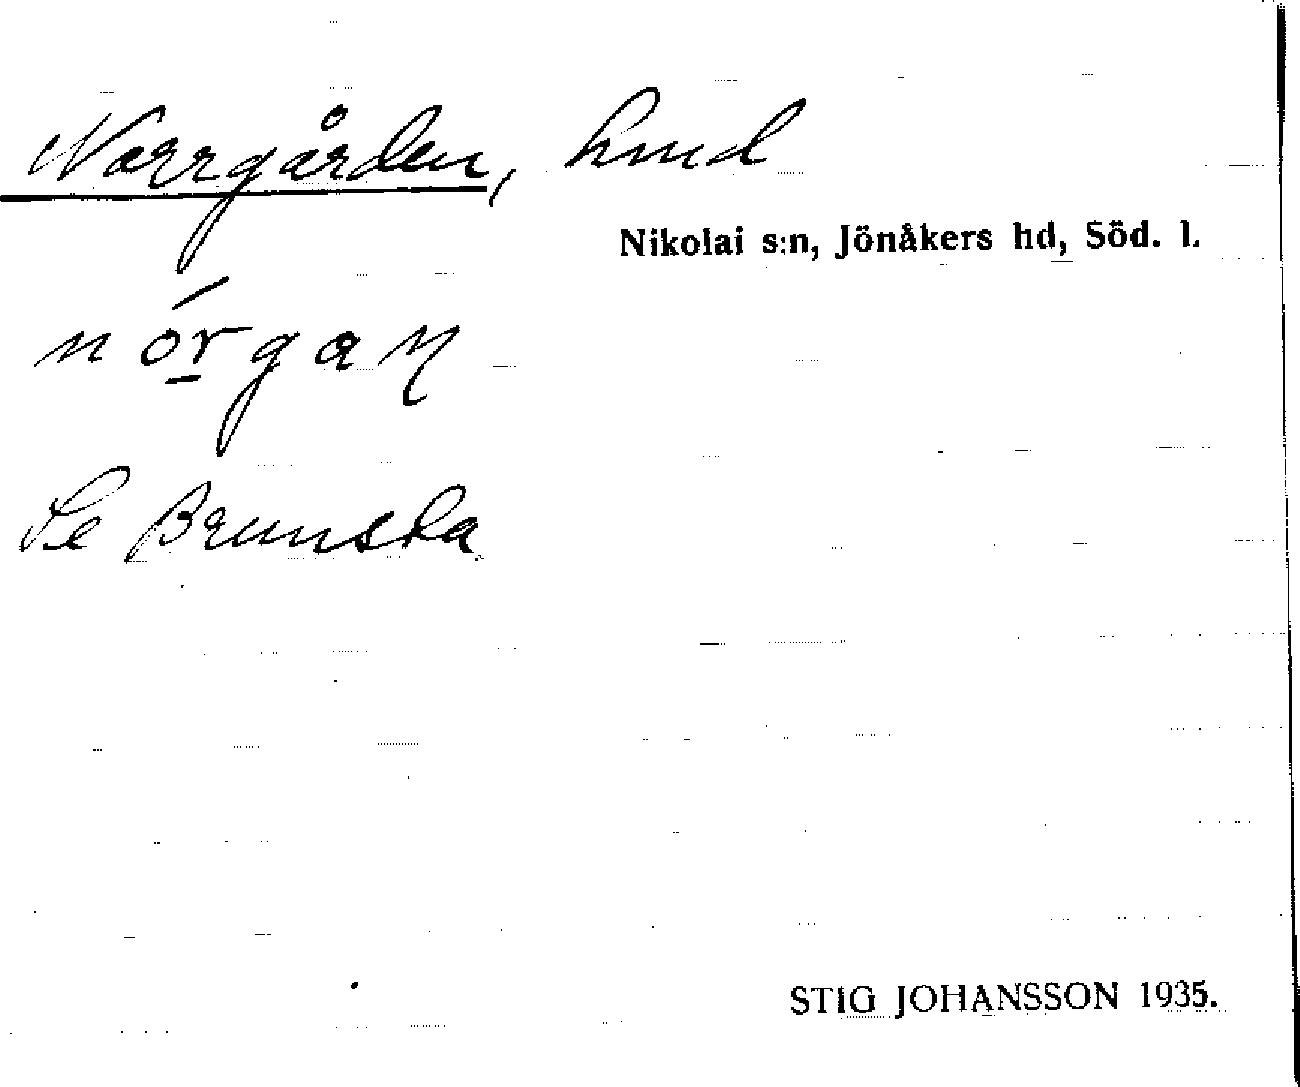 Norrgården, hmd
Nikolai s:n, Jönåkers hd, Söd. l.
Se Brunsta
STIG JOHANSSON 1935.